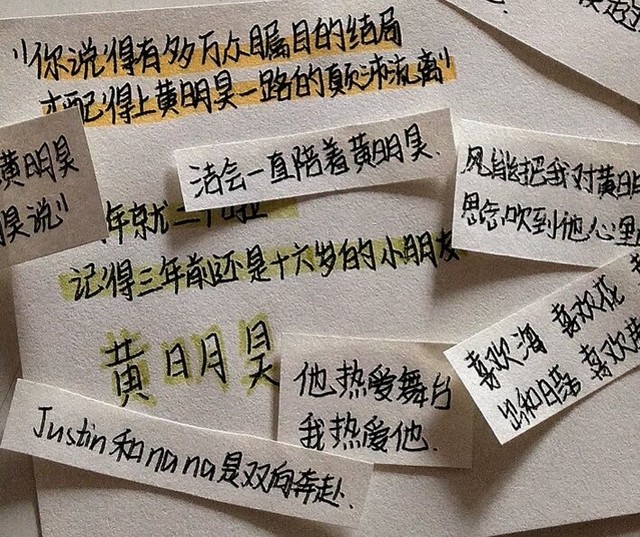 "你说得有多万众瞩目的结局
才配得上黄明昊一路的颠沛流离"
黄明昊
昊说"
洁会一直陪着黄明昊.
风能把我对黄明
思念,吹到他心里
年就二十啦
记得三年前还是十六岁的小朋友
黄明昊
喜欢海 喜欢花
喜欢
他热爱舞台
我热爱他.
Justin和nana是双向奔赴.